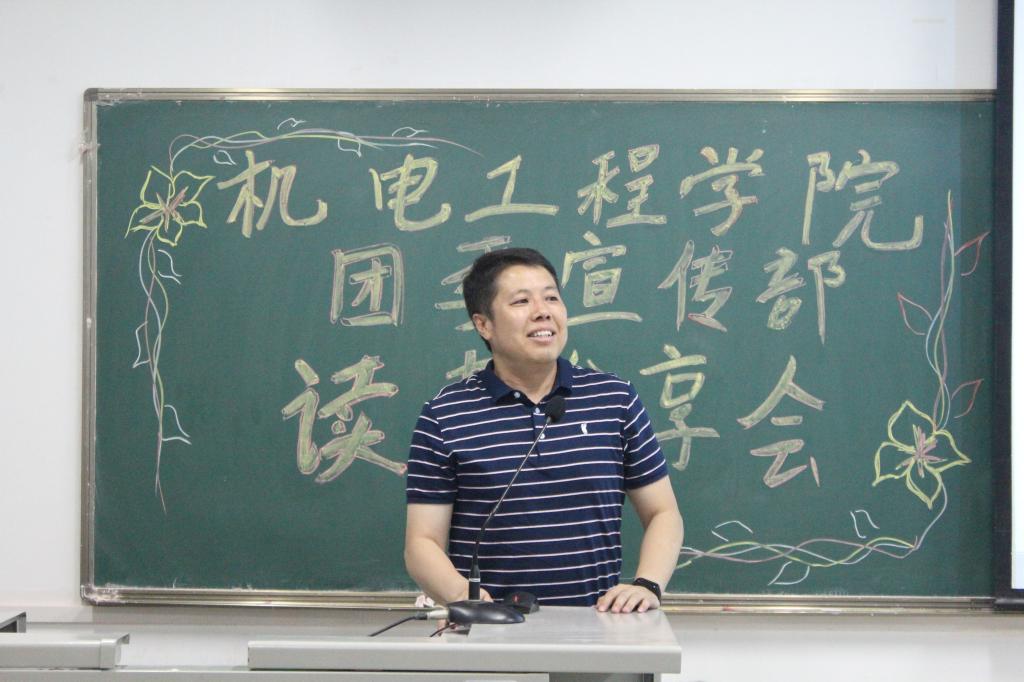 机电工程学院
团委宣传部
读享会